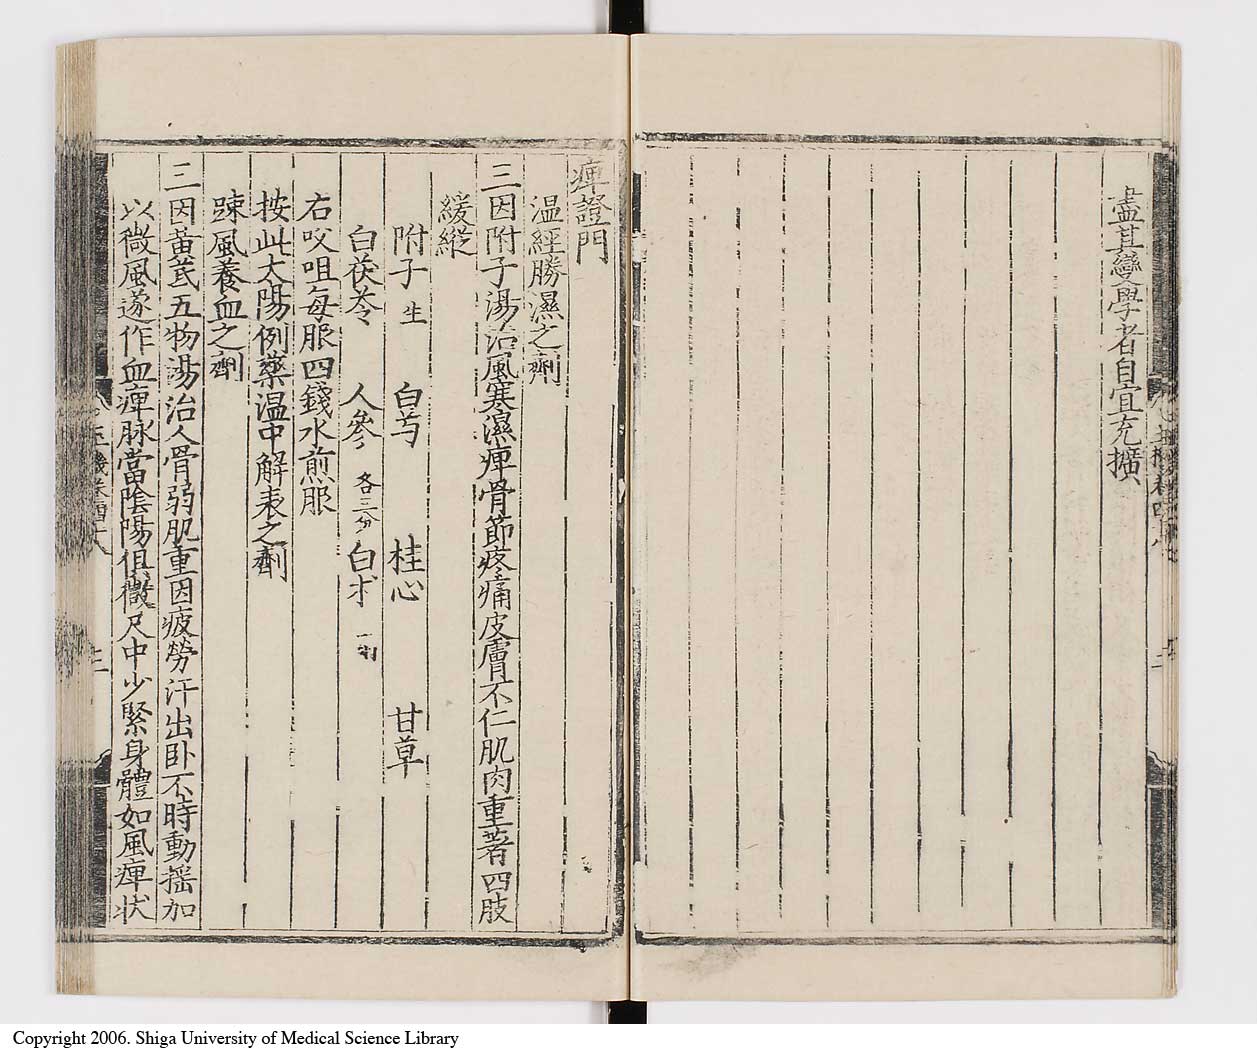 盡其變學者自宜充擴
痺證門
温經勝濕之劑
三因附子湯治風寒濕痺骨節疼痛皮膚不仁肌肉重著四肢
緩縱
附子生 白芍 桂心 甘草
白茯苓 人參各三分 白朮一兩
右㕮咀每服四錢水煎服
按此太陽例藥温中解表之劑
踈風養血之劑
三因黃芪五物湯治人骨弱肌重因疲勞汗出卧不時動揺加
以微風遂作血痺脉當陰陽俱微尺中少緊身體如風痺状
Copyright 2006. Shiga University of Medical Science Library